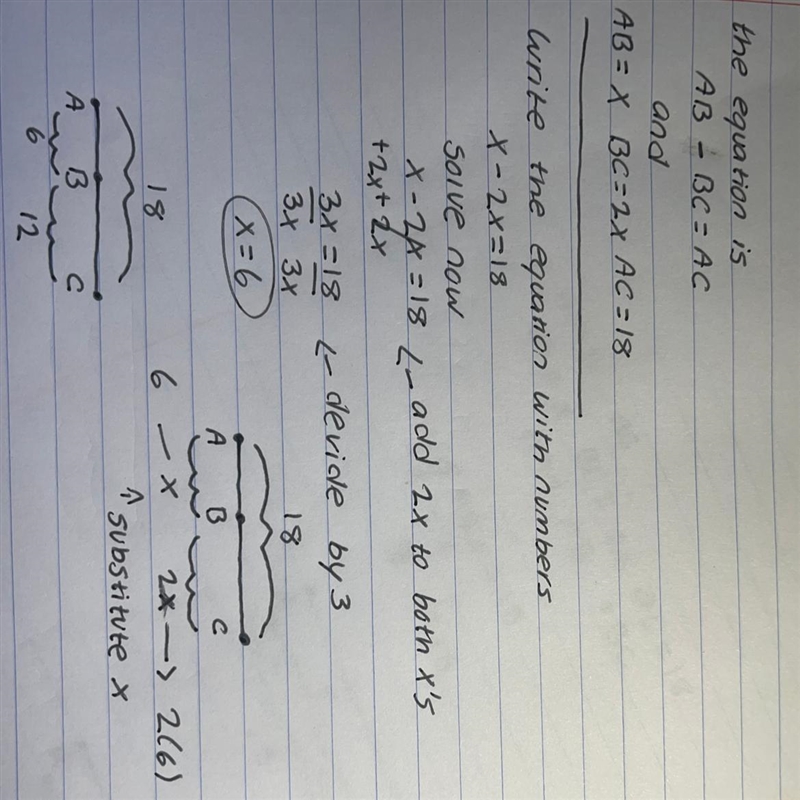 the equation is
AB - BC = AC
and
AB = x BC = 2x AC = 18
write the equation with numbers
x - 2x = 18
Solve now
x - 2x = 18 <- add 2x to both x's
+2x + 2x
3x = 18 <- devide by 3
3x 3x
x = 6
18
A B C
6 - x 2x -> 2(6)
↑ substitute x
18
A B C
6 12